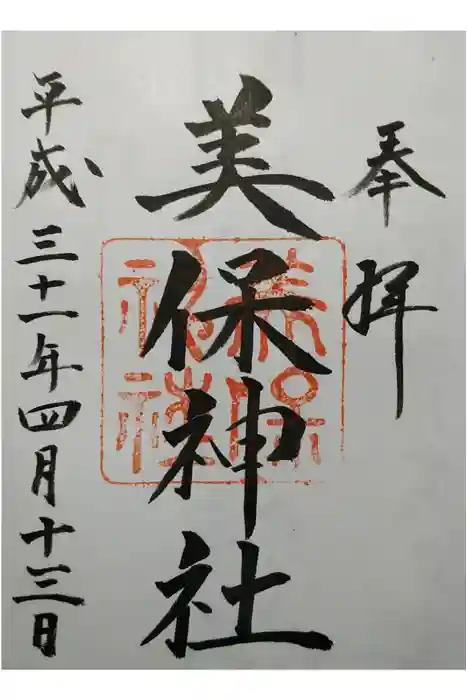 奉拝
美保神社
美保
神社
平成三十一年四月十三日